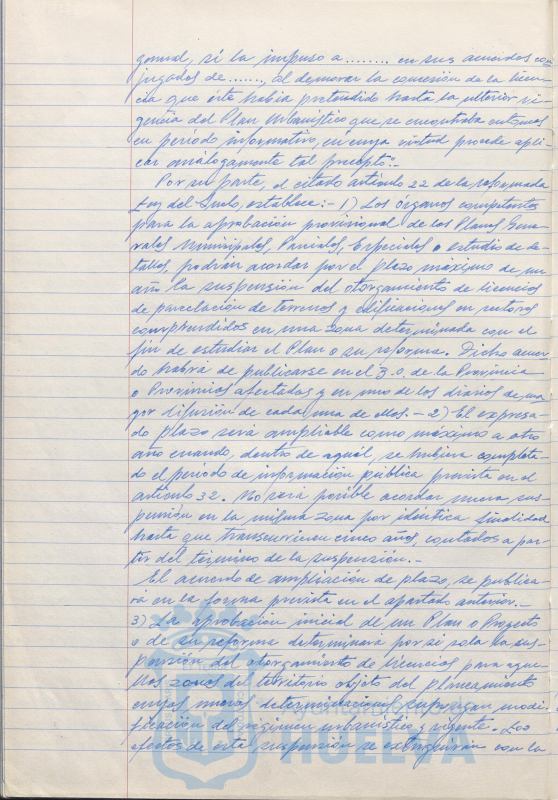 gonal, si la impuso a ........ en sus acuerdos con-
jugados de ......., al demorar la concesión de la licen-
cia que éste había pretendido hasta la ulterior vi-
gencia del Plan Urbanístico que se encontraba entonces
en período informativo, en cuya virtud procede apli-
car analógamente tal precepto".
Por su parte, el citado artículo 22 de la reformada
Ley del Suelo, establece:- 1) Los órganos competentes
para la aprobación provisional de los Planes Gene-
rales, Municipales, Parciales, Especiales o estudio de de-
talles, podrán acordar por el plazo máximo de un
año la suspensión del otorgamiento de licencias
de parcelación de terrenos y edificaciones en sectores
comprendidos en una zona determinada con el
fin de estudiar el Plan o su reforma. Dicho acuer-
do habrá de publicarse en el B.O. de la Provincia
o Provincias afectadas y en uno de los diarios de ma-
yor difusión de cada una de ellas. - 2) El expresa-
do plazo será ampliable como máximo a otro
año cuando, dentro de aquél, se hubiera completa-
do el período de información pública prevista en el
artículo 32. No será posible acordar nueva sus-
pensión en la misma zona por idéntica finalidad
hasta que transcurriesen cinco años, contados a par-
tir del término de la suspensión.-
El acuerdo de ampliación de plazo, se publica-
rá en la forma prevista en el apartado anterior.-
3) La aprobación inicial de un Plan o Proyecto
o de su reforma determinará por si sola la sus-
pensión del otorgamiento de licencias para aque-
llas zonas del territorio objeto del planeamiento
cuyas nuevas determinaciones supongan modi-
ficación del régimen urbanístico vigente. Los
efectos de esta suspensión se extinguirán con la
HUELVA